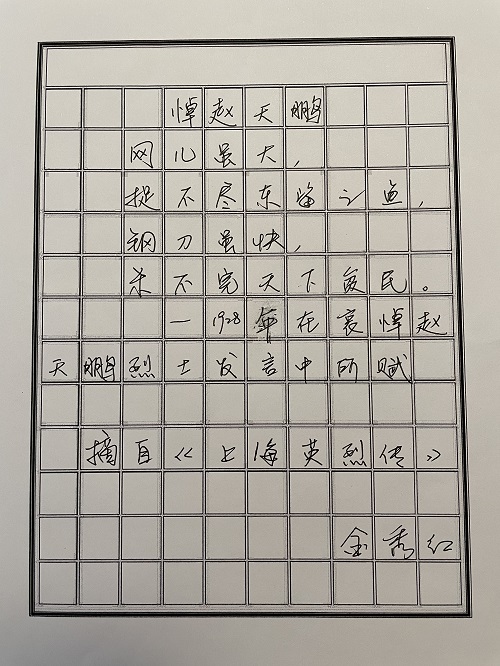 悼赵天鹏
网儿虽大，
捉不尽东海之鱼，
钢刀虽快，
杀不完天下贫民。
—1928年在哀悼赵
天鹏烈士发言中所赋
摘自《上海英烈传》
金秀红